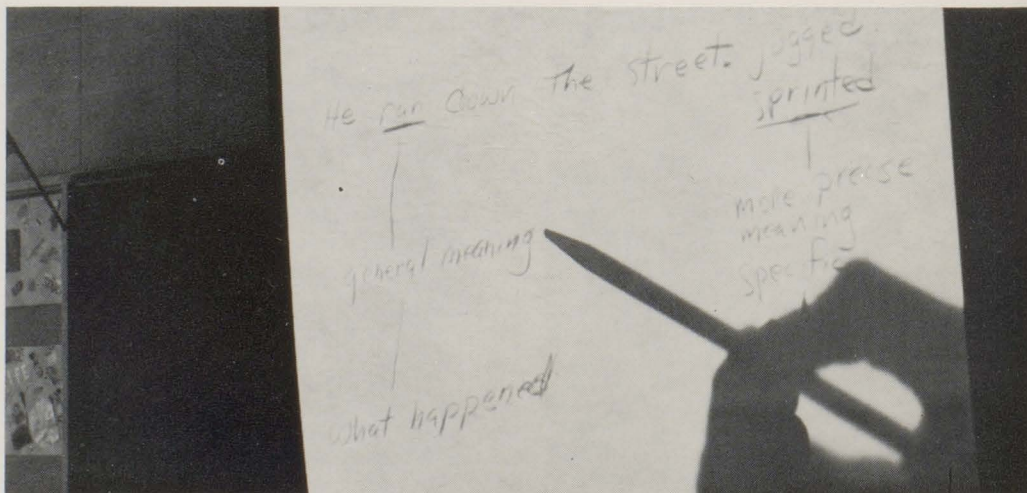 He ran down the street. jogged.
sprinted
general meaning
what happened
more precise
meaning
specific